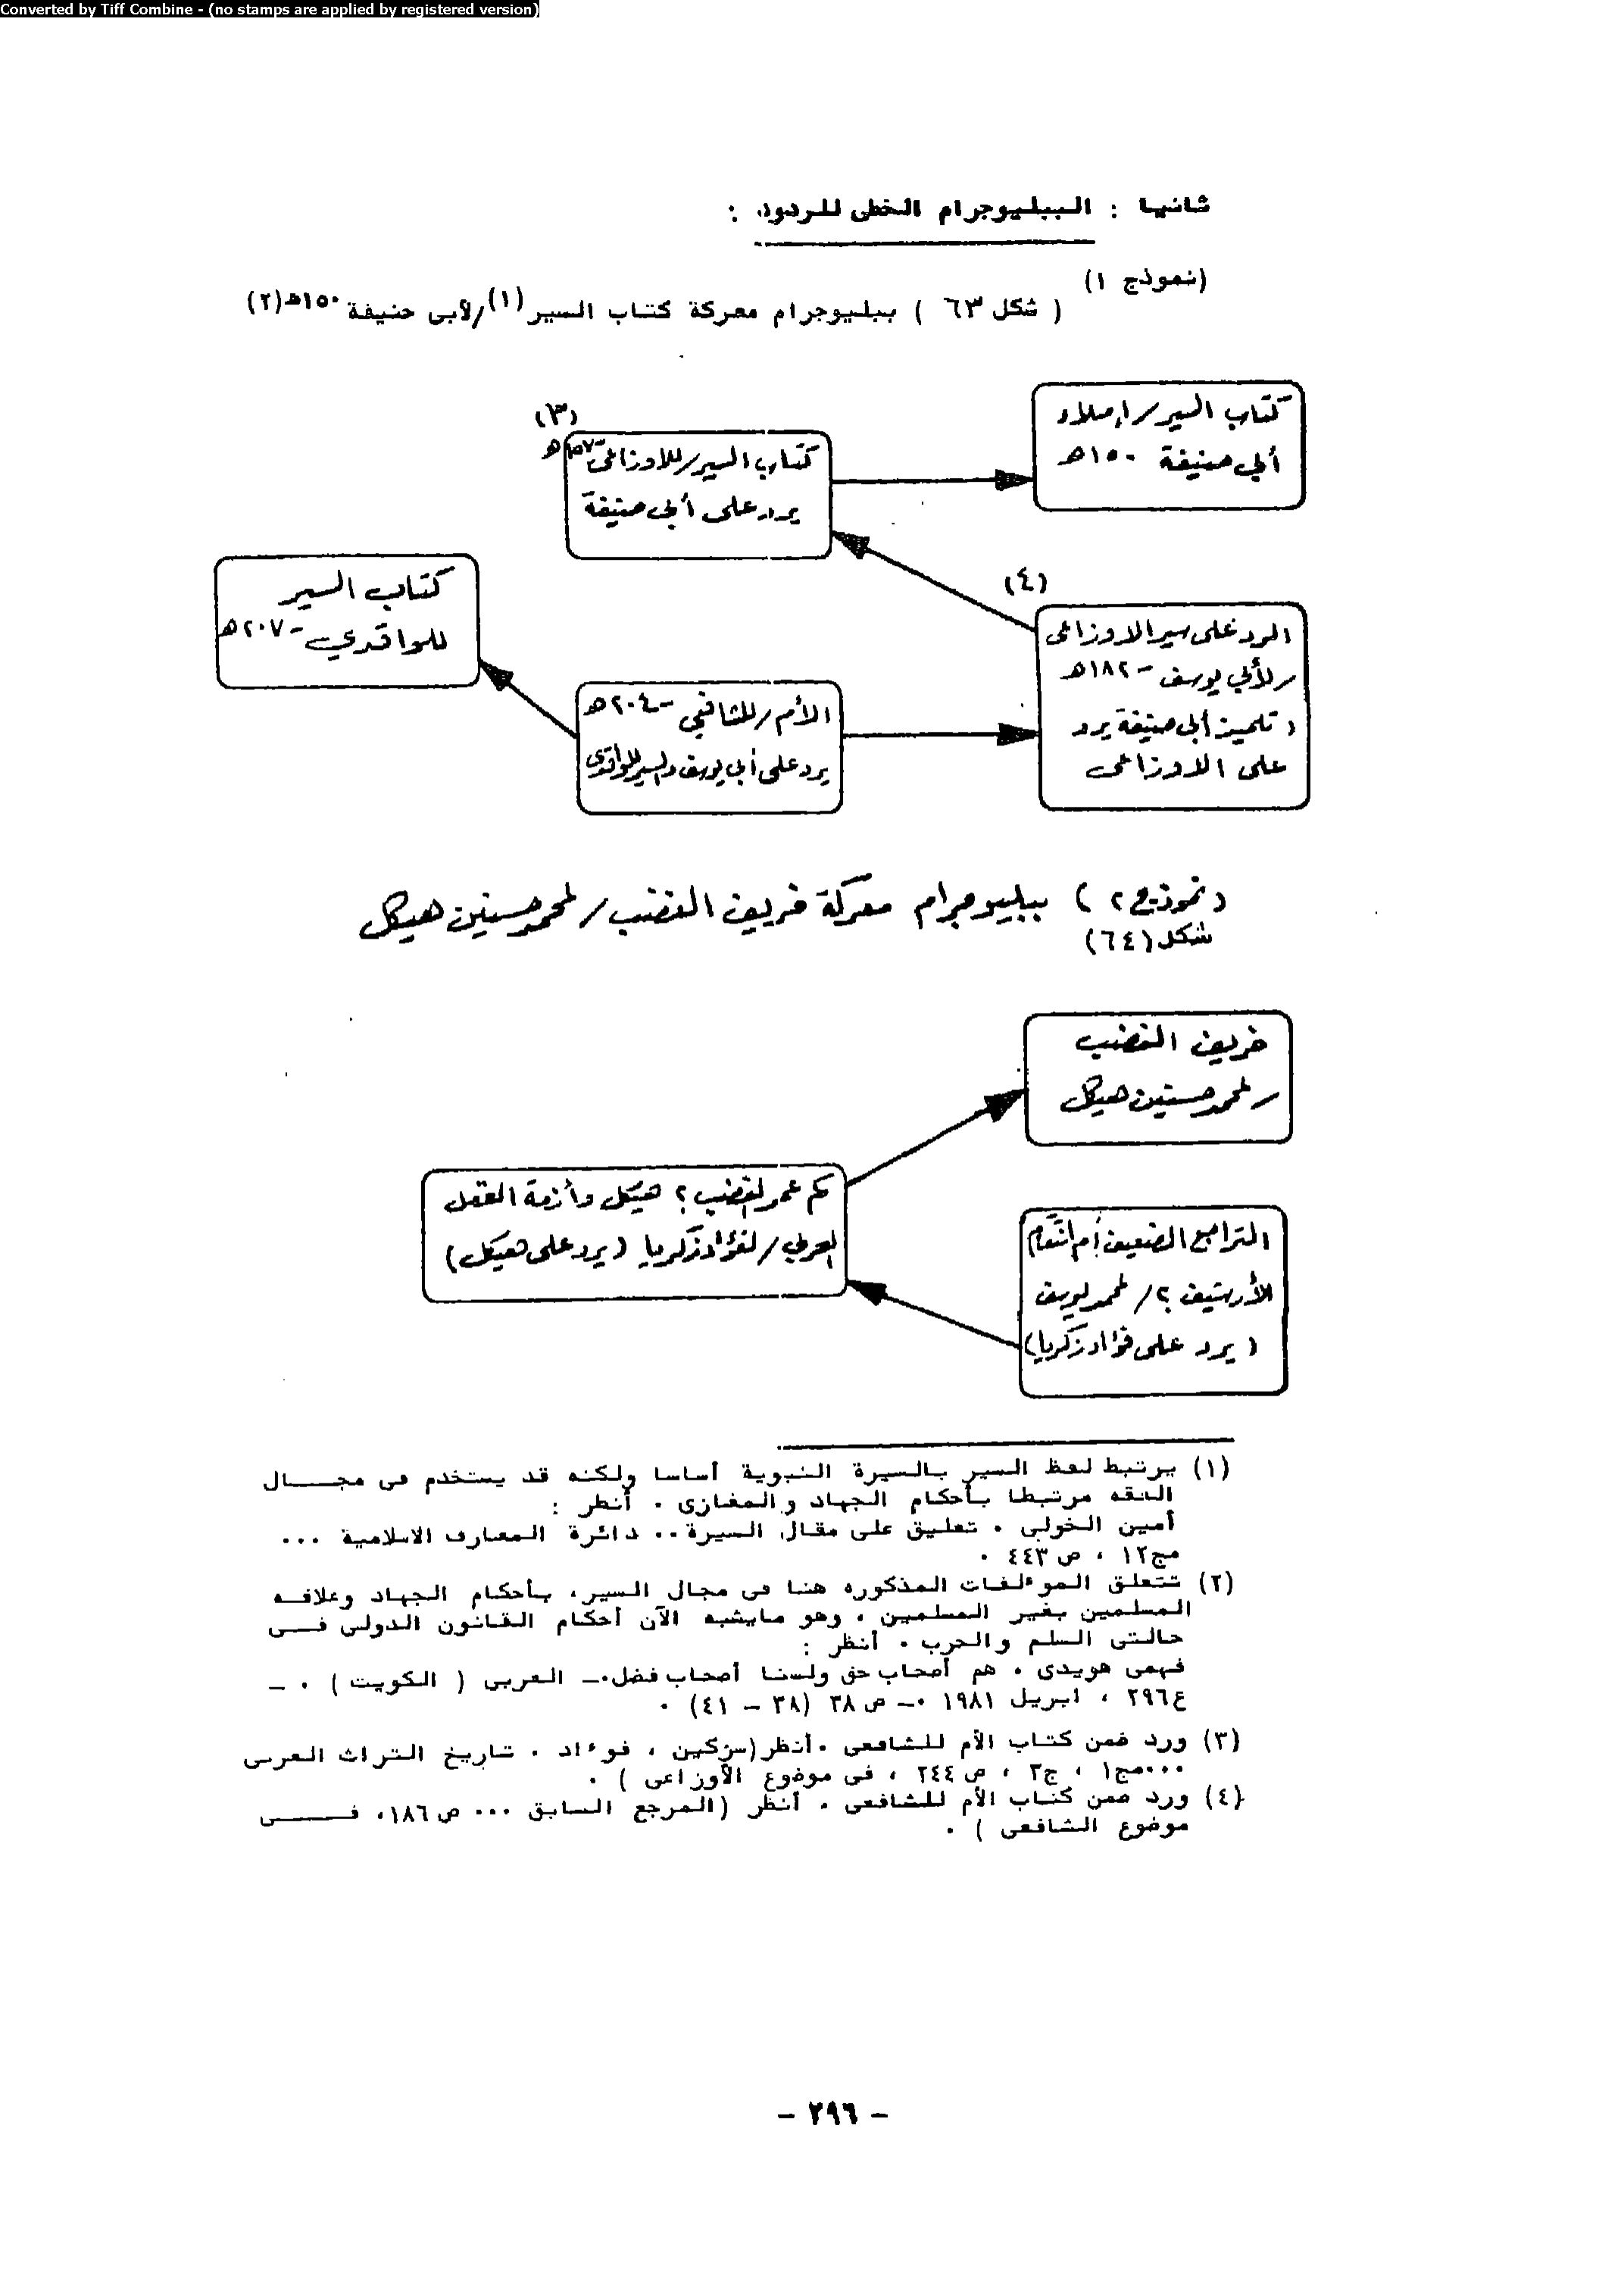 Converted by Tiff Combine - (no stamps are applied by registered version)
ثانيا : الببليوجرام الخطى للردود :
(نموذج ١)
( شكل ٦٣ ) ببليوجرام معركة كتاب السير (١)/لأبى حنيفة ١٥٠هـ(٢)
كتاب السير/إملاء
أبي حنيفة ١٥٠هـ
(٣)
كتاب السير/للاوزاعى -١٥٧هـ
يرد على أبي حنيفة
(٤)
الرد على سير الاوزاعى
/لأبي يوسف -١٨٢هـ
( تلميذ أبي حنيفة يرد
على الاوزاعى
كتاب السير
للواقدي -٢٠٧هـ
الأم/للشافعي -٢٠٤هـ
يرد على أبي يوسف والسير للواقدى
(نموذج ٢ ) ببليوجرام معركة خريف الغضب/لمحمد حسنين هيكل
شكل (٦٤)
خريف الغضب
/لمحمد حسنين هيكل
كم عمر الغضب ؟ هيكل وأزمة العقل
العربي/لفؤاد زكريا (يرد على هيكل)
التراجع الضعيف أم انتقام
الأرشيف ؟/لمحمد يوسف
( يرد على فؤاد زكريا)
(١) يرتبط لفظ السير بالسيرة النبوية أساسا ولكنه قد يستخدم فى مجال
الفقه مرتبطا بأحكام الجهاد والمغازى . أنظر :
أمين الخولى . تعليق على مقال السيرة.. دائرة المعارف الاسلامية ...
مج١٢ ، ص ٤٤٣ .
(٢) تتعلق المؤلفات المذكوره هنا فى مجال السير، بأحكام الجهاد وعلاقه
المسلمين بغير المسلمين ، وهو مايشبه الآن أحكام القانون الدولى فى
حالتى السلم والحرب . أنظر :
فهمى هويدى . هم أصحاب حق ولسنا أصحاب فضل.— العربى ( الكويت ) . —
ع٢٩٦ ، ابريل ١٩٨١ .— ص ٣٨ (٣٨ — ٤١) .
(٣) ورد ضمن كتاب الأم للشافعى .أنظر(سزكين ، فؤاد . تاريخ التراث العربى
...مج١ ، ج٣ ، ص ٢٤٤ ، فى موضوع الأوزاعى ) .
(٤) ورد ضمن كتاب الأم للشافعى . أنظر (المرجع السابق ... ص ١٨٦، فى
موضوع الشافعى ) .
— ٢٩٦ —